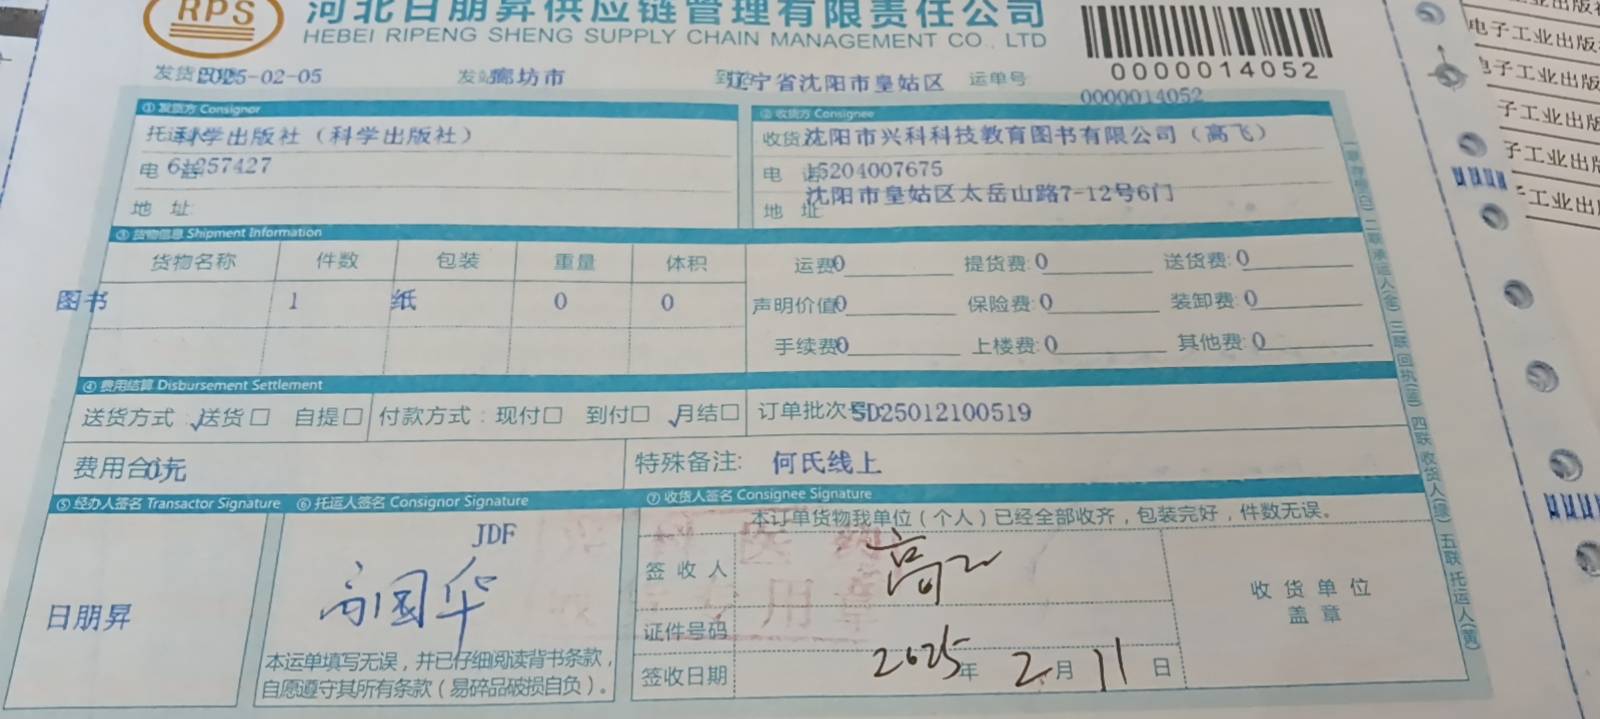 RPS
河北日朋昇供应链管理有限责任公司
HEBEI RIPENG SHENG SUPPLY CHAIN MANAGEMENT CO., LTD
0000014052
发货 2025-02-05 发站 廊坊市 到 辽宁省沈阳市皇姑区 运单号 0000014052
① 发货方 Consignor
托运 科学出版社（科学出版社）
电话
地 址
② 收货方 Consignee
收货 沈阳市兴科科技教育图书有限公司（高飞）
电 话 15204007675
地 址 沈阳市皇姑区太岳山路7-12号6门
③ 货物信息 Shipment Information
货物名称 件数 包装 重量 体积
图书 1 纸 0 0
运费 0 提货费: 0 送货费: 0
声明价值 0 保险费: 0 装卸费: 0
手续费 0 上楼费: 0 其他费: 0
④ 费用结算 Disbursement Settlement
送货方式: √送货□ 自提□ 付款方式: 现付□ 到付□ √月结□ 订单批次号 SD25012100519
费用合计 0元 特殊备注: 何氏线上
⑤ 经办人签名 Transactor Signature
日朋昇
⑥ 托运人签名 Consignor Signature
JDF
高国华
本运单填写无误，并已仔细阅读背书条款，
自愿遵守其所有条款（易碎品破损自负）。
⑦ 收货人签名 Consignee Signature
本订单货物我单位（个人）已经全部收齐，包装完好，件数无误。
签 收 人 高
证件号码
签收日期 2025年 2月 11日
收 货 单 位
盖 章
二联承运人(金) 三联回执(蓝) 四联收货人(绿) 五联托运人(黄)
电子工业出版
电子工业出版
子工业出版
子工业出版
工业出版